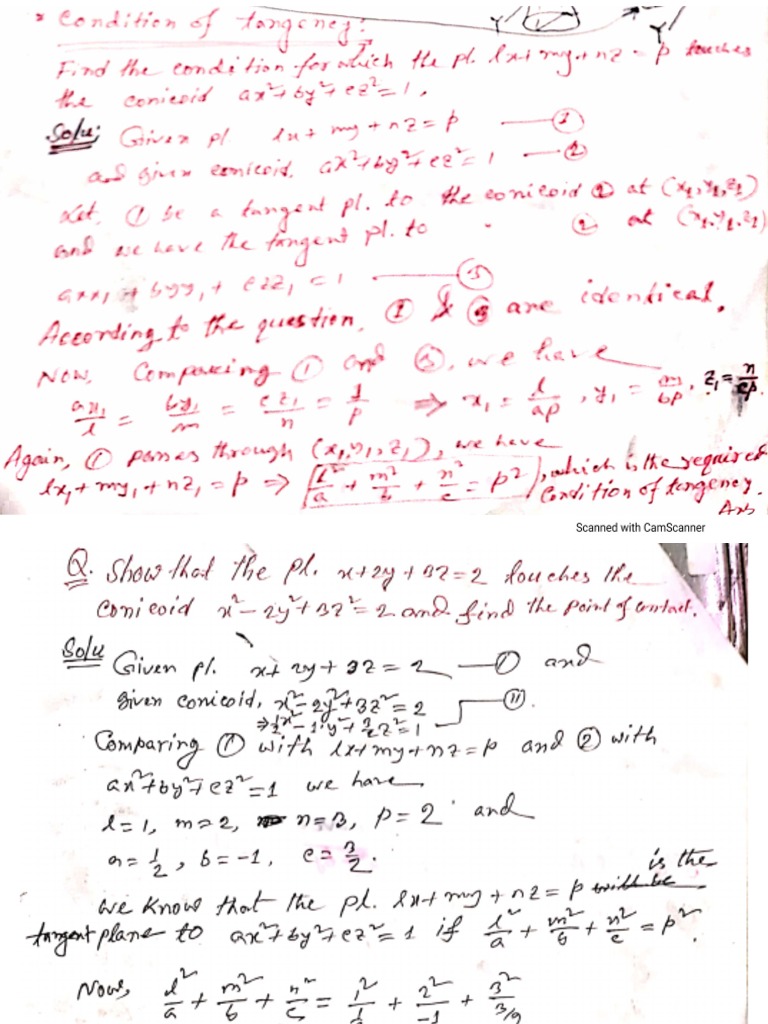 * Condition of tangency:
Find the condition for which the pl. lx+my+nz = p touches
the conicoid ax²+by²+cz²=1.
Solu: Given pl. lx+my+nz=p — ①
and given conicoid, ax²+by²+cz²=1 — ②
Let, ① be a tangent pl. to the conicoid ② at (x₁,y₁,z₁)
and we have the tangent pl. to " ② at (x₁,y₁,z₁)
axx₁ + byy₁ + czz₁ = 1 — ③
According to the question, ① & ③ are identical.
Now, Comparing ① and ③, we have
ax₁/l = by₁/m = cz₁/n = 1/p ⇒ x₁ = l/ap, y₁ = m/bp, z₁ = n/cp.
Again, ① passes through (x₁,y₁,z₁), we have
lx₁+my₁+nz₁=p ⇒ [l²/a + m²/b + n²/c = p²], which is the required
Condition of tangency.
Ans
Scanned with CamScanner
Q. Show that the pl. x+2y+3z=2 touches the
conicoid x²-2y²+3z²=2 and find the point of contact.
Solu Given pl. x+2y+3z=2 — ① and
given conicoid, x²-2y²+3z²=2 — ⑪.
⇒ 1/2 x² - 1·y² + 3/2 z² = 1
Comparing ① with lx+my+nz=p and ② with
ax²+by²+cz²=1 we have
l=1, m=2, n=3, p=2 and
a=1/2, b=-1, c=3/2.
we know that the pl. lx+my+nz=p will be is the
tangent plane to ax²+by²+cz²=1 if l²/a + m²/b + n²/c = p².
Now, l²/a + m²/b + n²/c = 1²/ + 2²/-1 + 3²/